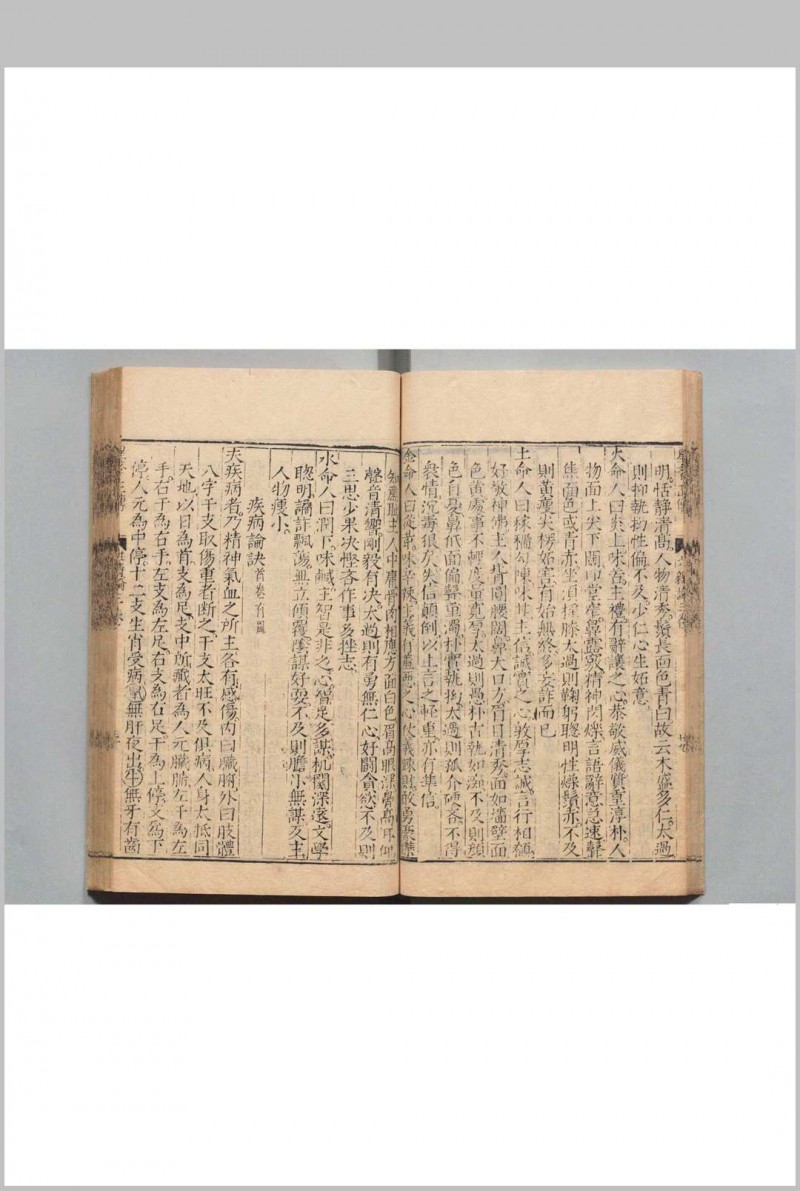 明恬靜清高人物清秀鬚長面色青白故云木盛多仁太過
則抑執物性偏不及少仁心生妬意
火命人曰炎上味苦主禮有辭讓之心恭敬威儀質重淳朴人
物面上尖下闊印堂窄鼻露竅精神閃爍言語辭意急速聲
焦面色或青赤坐須搖膝太過則鞠躬聰明性燥鬚赤不及
則黃瘦尖楞妬害有始無終多妄詐而已
土命人曰稼穡勾陳味甘主信誠實之心敦厚志誠言行相顧
好敬神佛主人背圓腰闊鼻大口方眉目清秀面如墻壁面
色黃處事不輕度量寬厚太過則愚朴古執如痴不及則顏
色自憂鼻低面偏聲重濁朴實執拗太過則孤介硬吝不得
衆情沉毒狠戾失信顛倒以上言之輕重亦有準信
金命人曰從革味辛辣主義有羞惡之心仗義疎財敢勇豪傑
知廉恥主人中庸骨肉相應方面白色眉高眼深鼻高耳仰
聲音清響剛毅有決太過則有勇無仁心好鬪貪慾不及則
三思少果決慳吝作事多挫志
水命人曰潤下味鹹主智是非之心智足多謀机關深遠文學
聰明譎詐飄蕩無立傾覆陰謀好惡不及則膽小無謀反主
人物瘦小
疾病論訣 首卷有論
夫疾病者乃精神氣血之所主各有感傷內曰臟腑外曰肢體
八字干支取傷重者斷之干支太旺不及俱病人身太抵同
天地以日為首支為足支中所藏者為人元臟腑左干為左
手右干為右手左支為左足右支為右足干為上停支為下
停人元為中停十二支生肖受病鼠無肝夜出牛無牙有齒